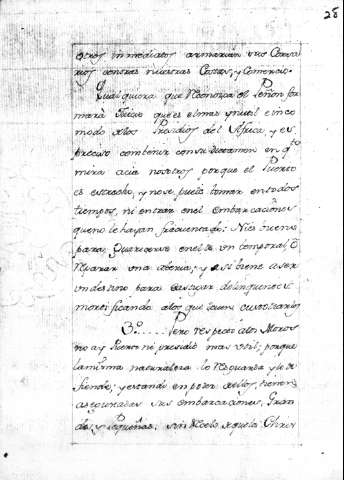 25
otros inmediatos armarian sus Corsa
rios contra nuestras Costas, y Comercio.
Qualquiera que reconozca el Peñon for
mará Juicio que es el mas ynutil e inco
modo de los Presidios del Africa, y es
preciso combenir con su dictamen en qto
mira acia nosotros porque el Puerto
es estrecho, y no se puede tomar en todos
tiempos, ni entrar en el Embarcaciones
que no le hayan frecuentado: Ni es bueno
para Guarecerse en el de un temporal, ò
reparar una aberia; y asi biene a ser
un destino para castigar delinquentes y
mortificando a los que tienen
3º..... Pero respecto a los Moros
no ay Puerto ni presidio mas util; porque
la misma naturaleza lo resguarda y le de
fiende; y estando en poder de ellos, tienen
aseguradas sus embarcaciones, Gran
des, y Pequeñas, sin recelo de que los Chris